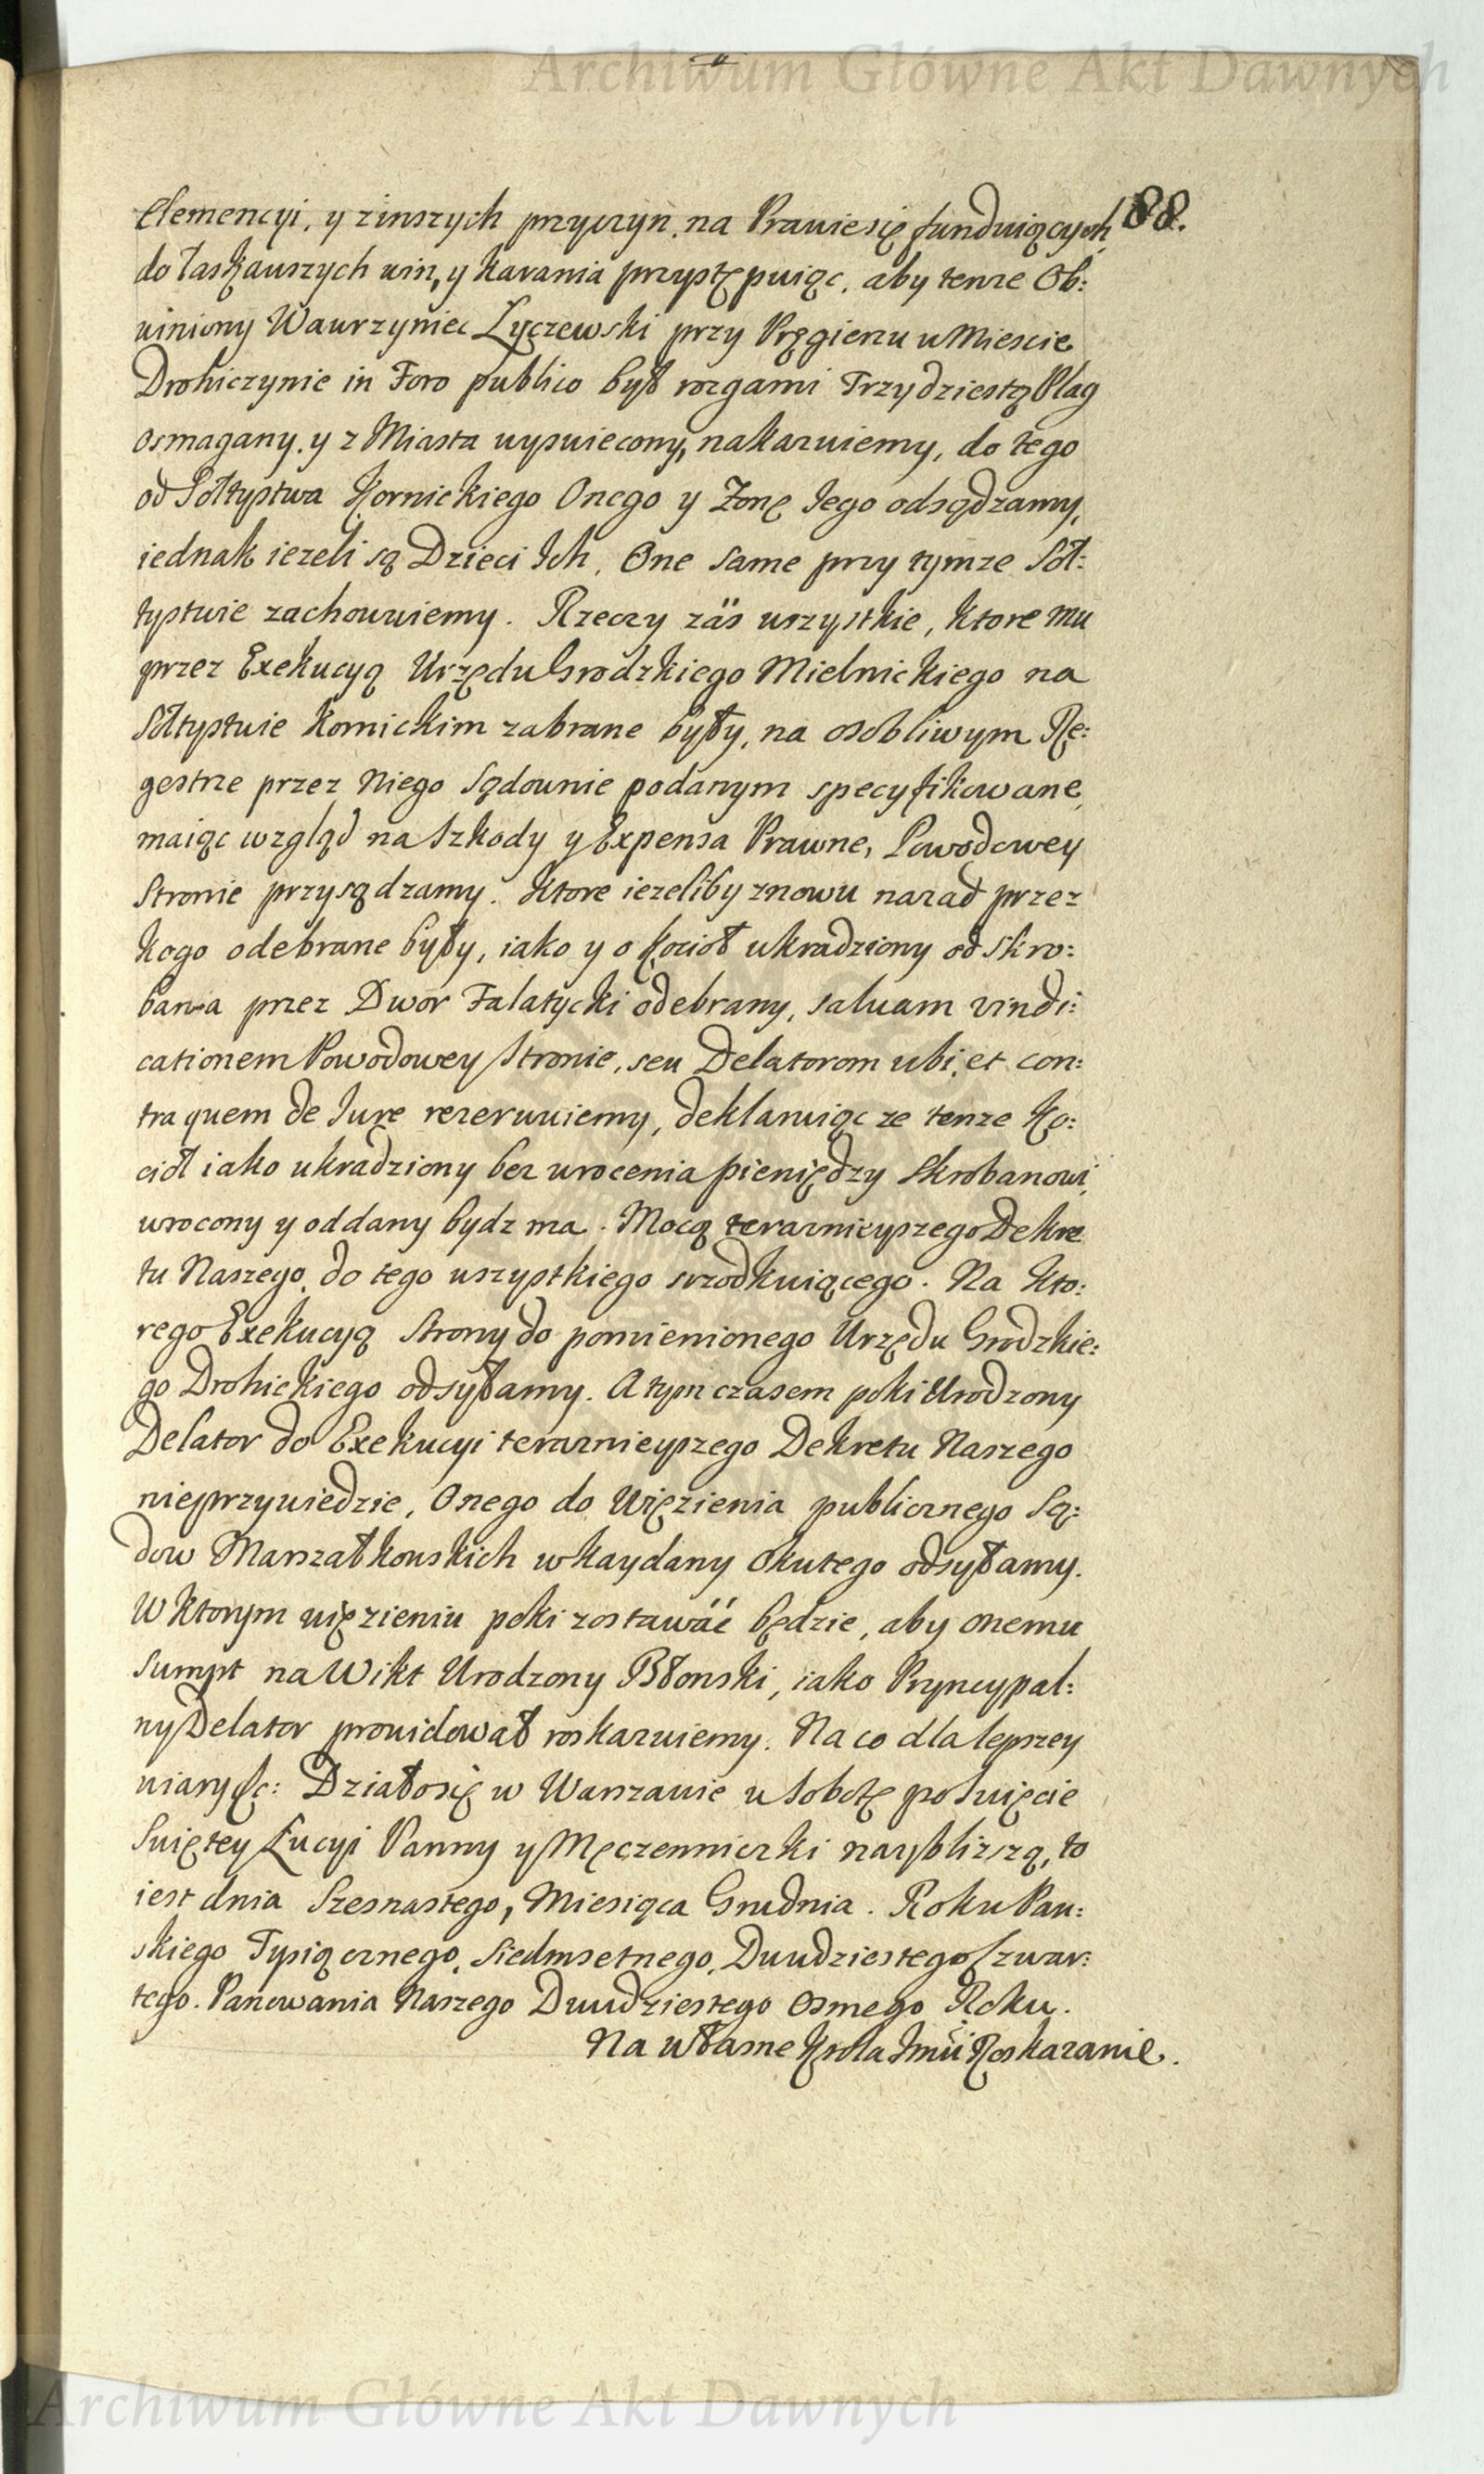 Archiwum Główne Akt Dawnych
188.
Clemencyi, y zinszych przyczyn, na Prawie się funduiących,
do łaskawszych win, y karania przystępuiąc, aby tenze Ob:
winiony Wawrzyniec Łyczewski przy Pręgierzu w Miescie
Drohiczynie in Foro publico był rozgami Trzydziestą Plag
osmagany, y z Miasta wyswiecony, nakazuiemy, do tego
od Sołtystwa Kornickiego Onego y Zonę Jego odsądzamy,
iednak iezeli są Dzieci Ich, One same przy tymze Soł:
tystwie zachowuiemy. Rzeczy zäs wszystkie, ktore mu
przez Exekucyą Urzędu Grodzkiego Mielnickiego na
Sołtystwie Kornickim zabrane były, na osobliwym Re:
gestrze przez Niego Sądownie podanym specyfikowane,
maiąc wzgląd na Szkody y Expensa Prawne, Powodowey
Stronie przysądzamy. Ktore iezeliby znowu nazad przez
kogo odebrane były, iako y o kocioł ukradziony od Skro:
bana przez Dwor Falatycki odebrany, salvam vindi:
cationem Powodowey Stronie, seu Delatorom ubi, et con:
tra quem de Jure rezerwuiemy, deklaruiąc ze tenze Ko:
cioł iako ukradziony bez wrocenia pieniędzy Skrobanowi,
wrocony y oddany bydz ma. Mocą teraznieyszego Dekre
tu Naszego, do tego wszystkiego srzodkuiącego. Na kto:
rego Exekucyą Strony do pomienionego Urzędu Grodzkie:
go Drohickiego odsyłamy. A tym czasem poki Urodzony
Delator do Exekucyi teraznieyszego Dekretu Naszego
nieprzywiedzie, Onego do Więzienia publicznego Są:
dow Marszałkowskich w kaydany okutego odsyłamy.
W ktorym więzieniu poki zostawáć będzie, aby onemu
sumpt na Wikt Urodzony Błonski, iako Pryncypal:
ny Delator prowidował roskazuiemy. Na co dla lepszey
wiary &c: Działosię w Warszawie w Sobotę po Swięcie
Swiętey Łucyi Panny y Męczenniczki nayblizszą, to
iest dnia Szesnastego, Miesiąca Grudnia. Roku Pan:
skiego Tysiącznego, Siedmsetnego, Dwudziestego Czwar:
tego. Panowania Naszego Dwudziestego Osmego Roku.
Na własne Krola Jmci Roskazanie.
Archiwum Główne Akt Dawnych